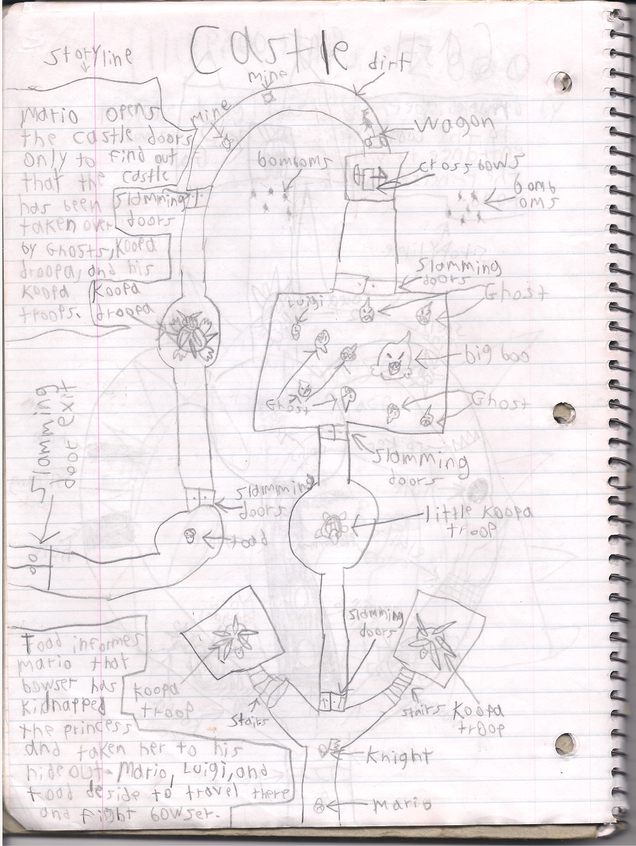 Castle
Storyline
mine
dirt
mine
wagon
Mario opens
the castle doors
only to find out
that the castle
has been
taken over
by Ghosts, Koopa
droopa, and his
Koopa
troops.
slamming
doors
bomboms
crossbows
bomb
oms
slamming
doors
Koopa
droopa
Luigi
Ghost
big boo
Ghost
Ghost
slamming
doors
slamming
door exit
slamming
doors
toad
little koopa
troop
slamming
doors
Koopa
troop
stairs
stairs
Koopa
troop
Knight
Mario
Toad informes
mario that
bowser has
kidnapped
the princess
and taken her to his
hideout. Mario, Luigi, and
toad deside to travel there
and fight bowser.